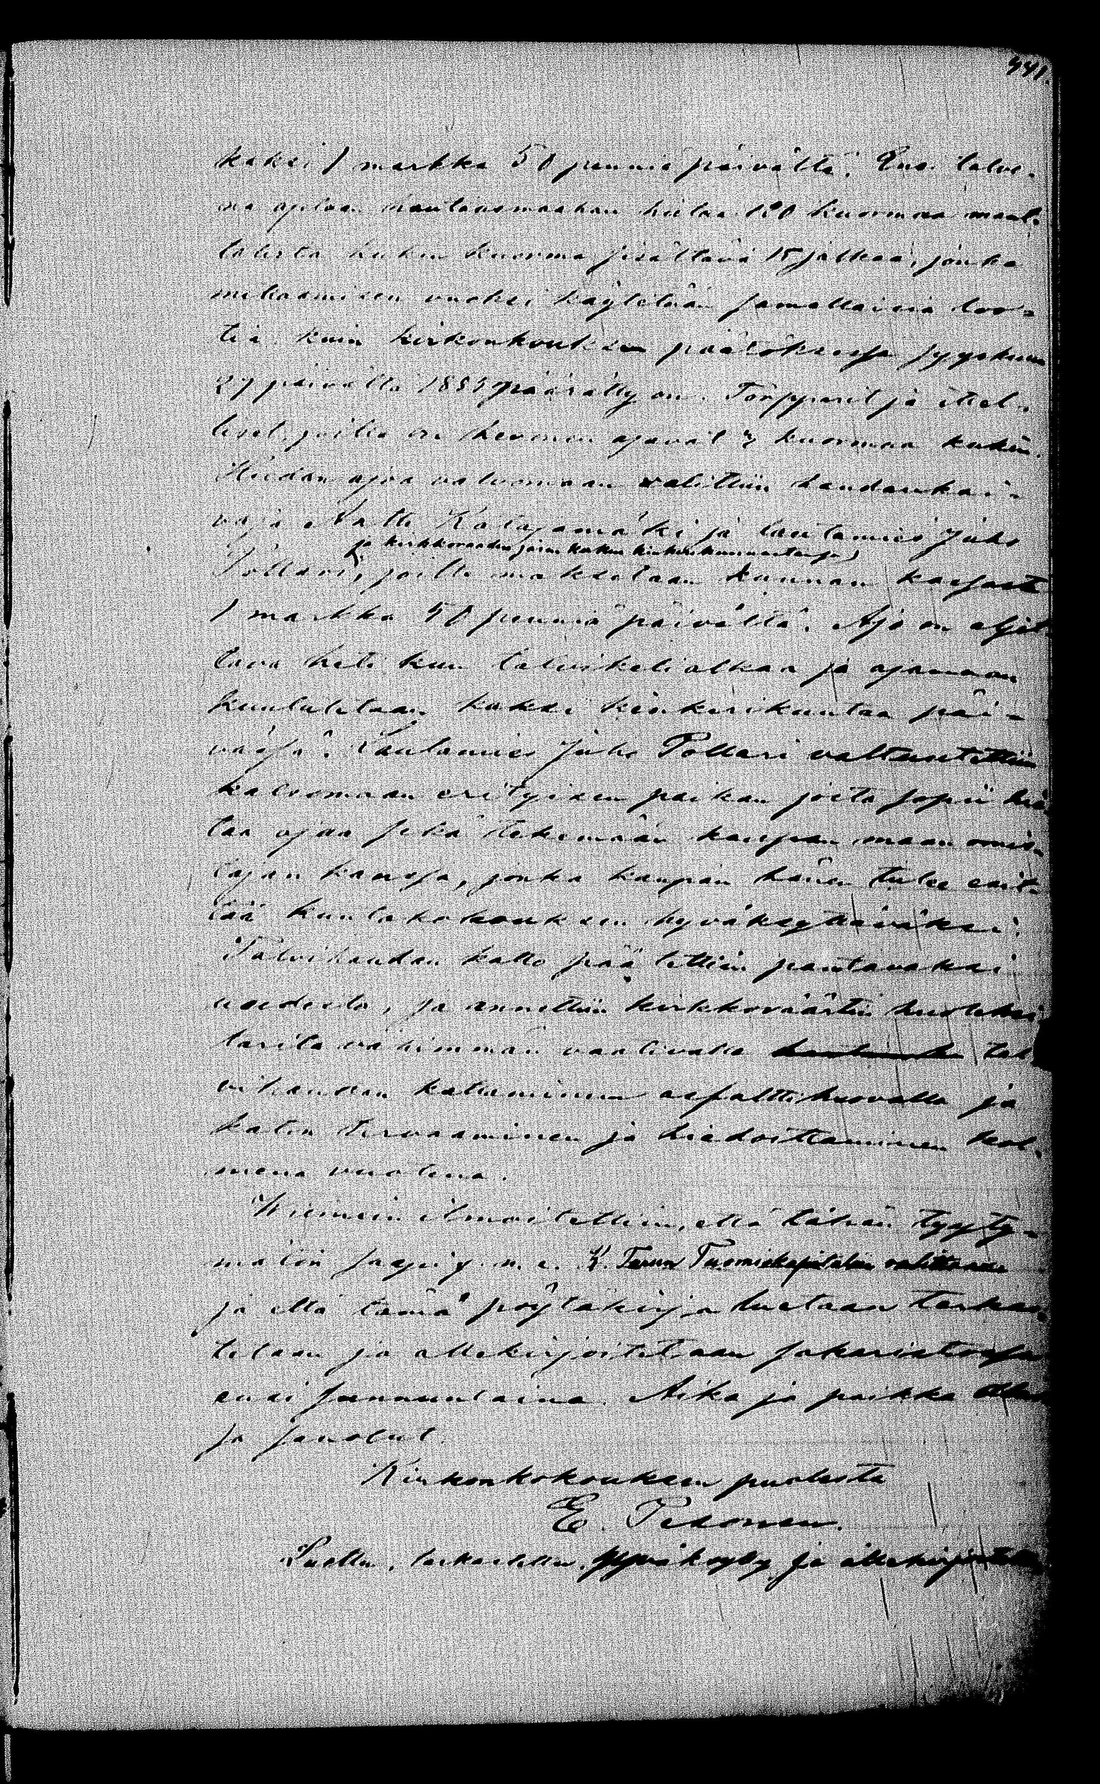 441.
kaksi 1 markka 50 penniä päivältä. Ensi talve-
na ajetaan hautausmaahan hietaa 120 kuormaa
kukin kuorma sisältävä 15 jalkaa, jonka
mittaamisen vuoksi käytetään samallaisia loo-
tia kuin kirkonkokouksen päätöksessä syyskuun
27 päivältä 1885 määrätty on. Torpparit ja itsel-
liset, joilla on hevonen ajavat kuormaa kukin.
Hiedan ajoa valvomaan valittiin haudankai-
vaja Antti Katajamäki ja lautamies Juho
Pollari, joille maksetaan kunnan kassasta
1 markka 50 penniä päivältä. Ajo on aljet
tava heti kun talvikeli alkaa ja ajamaan
kuulutetaan kaksi kinkerikuntaa päi-
vässä. Lautamies Juho Pollari valtuutettiin
katsomaan erityisen paikan josta sopii hie
taa ajaa sekä tekemään kaupan maan omis-
tajan kanssa, jonka kaupan hänen tulee esit-
tää kuntakokouksen hyväksyttäväksi.
Talvihaudan katto päätettiin pantavaksi
uudesta, ja annettiin kirkkoväärtin huoleksi
tarita vähimmän vaativalle tal
vihaudan kattaminen asfalttihuovalla ja
katon tervaaminen ja hiedoittaminen kol-
mena vuotena.
Viimein ilmoitettiin, että tähän tyyty-
mätön saapi y. m. e. K. Turun Tuomiokapiteliin valittaa
ja että tämä pöytäkirja luetaan tarkas-
tetaan ja allekirjoitetaan sakaristossa
ensi sunnuntaina. Aika ja paikka
ja sanotut.
Kirkonkokouksen puolesta
E. Pesonen.
Luettu, tarkastettu, hyväksytty ja allekirjoitettu